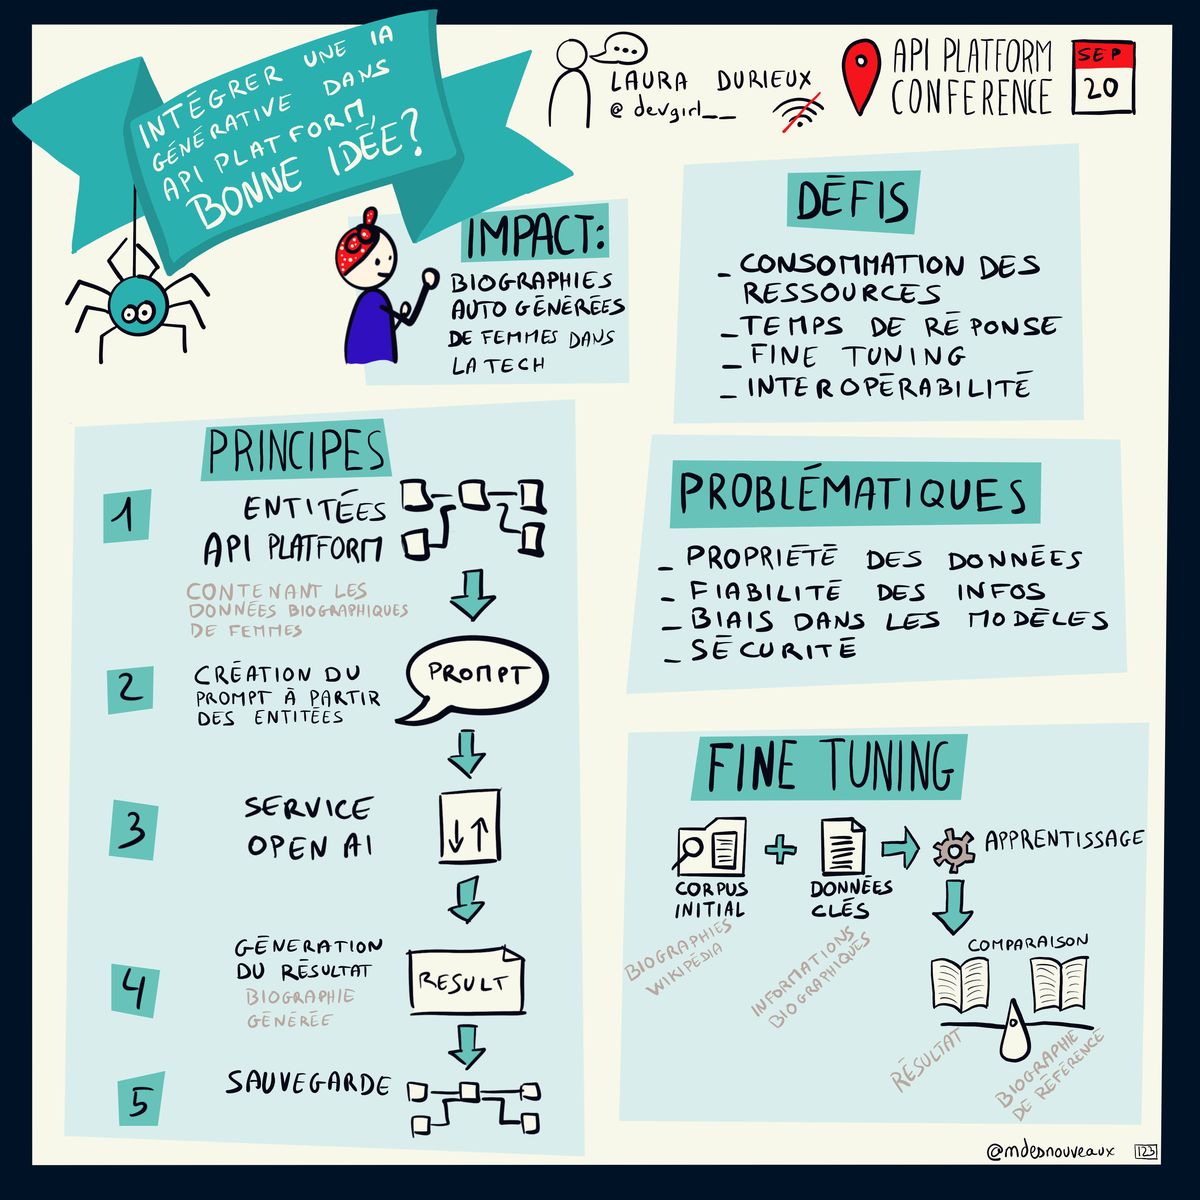 INTÉGRER UNE IA
GÉNÉRATIVE DANS
API PLATFORM,
BONNE IDÉE?
LAURA DURIEUX
@devgirl__
API PLATFORM
CONFERENCE
SEP
20
IMPACT:
BIOGRAPHIES
AUTO GÉNÉRÉES
DE FEMMES DANS
LA TECH
DÉFIS
- CONSOMMATION DES
RESSOURCES
- TEMPS DE RÉPONSE
- FINE TUNING
- INTEROPÉRABILITÉ
PRINCIPES
1
ENTITÉES
API PLATFORM
CONTENANT LES
DONNÉES BIOGRAPHIQUES
DE FEMMES
2
CRÉATION DU
PROMPT À PARTIR
DES ENTITÉES
PROMPT
3
SERVICE
OPEN AI
4
GÉNERATION
DU RÉSULTAT
BIOGRAPHIE
GÉNÉRÉE
RESULT
5
SAUVEGARDE
PROBLÉMATIQUES
- PROPRIÉTÉ DES DONNÉES
- FIABILITÉ DES INFOS
- BIAIS DANS LES MODÈLES
- SÉCURITÉ
FINE TUNING
CORPUS
INITIAL
BIOGRAPHIES
WIKIPÉDIA
DONNÉES
CLÉS
INFORMATIONS
BIOGRAPHIQUES
APPRENTISSAGE
COMPARAISON
RÉSULTAT
BIOGRAPHIE
DE RÉFÉRENCE
@mdesnouveaux
123